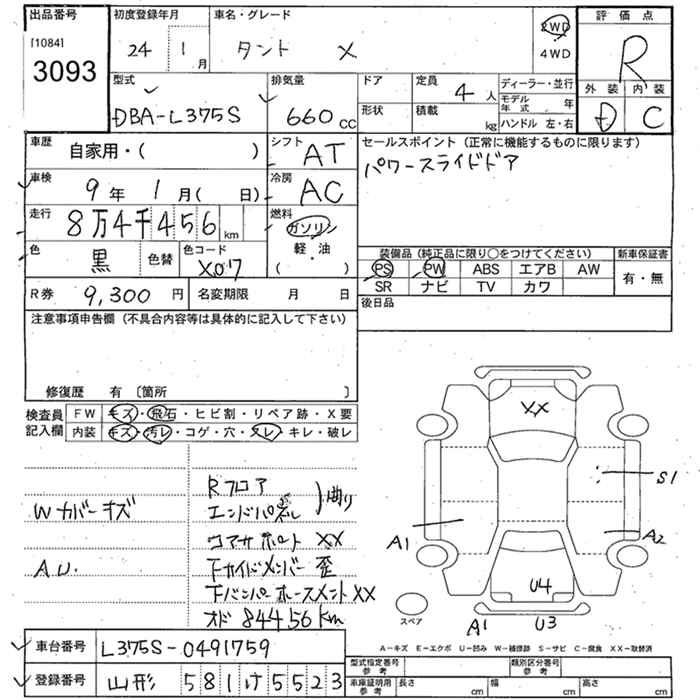 出品番号
[1084]
3093
初度登録年月
24 1 月
車名・グレード
タント X
2WD
4WD
評価点
R
外装 内装
D C
型式
DBA-L375S
排気量
660 cc
ドア
形状
定員 4 人
積載 kg
ディーラー・並行
モデル年式 年
ハンドル 左・右
車歴
自家用・( )
シフト
AT
セールスポイント (正常に機能するものに限ります)
パワースライドドア
車検
9 年 1 月 ( 日)
冷房
AC
走行
8万4千456 km
燃料
ガソリン
軽・油
( )
色
黒
色替
色コード
X07
装備品 (純正品に限り○をつけてください)
新車保証書
PS PW ABS エアB AW
SR ナビ TV カワ
有・無
R券 9,300 円
名変期限 月 日
後日品
注意事項申告欄 (不具合内容等は具体的に記入して下さい)
修復歴 有 〔箇所 〕
検査員記入欄
FW キズ・飛石・ヒビ割・リペア跡・X要
内装 キズ・汚レ・コゲ・穴・スレ・キレ・破レ
Wカバーキズ
A.U.
Rフロア
エンドパネル
)曲り
コアサポート XX
下サイドメンバー 歪
下バンパーホースメント XX
オド 84456 km
XX
S1
A1
A2
U4
A1
U3
スペア
A-キズ E-エクボ U-凹み W-補修跡 S-サビ C-腐食 XX-取替済
車台番号
L375S-0491759
登録番号
山形 581 け 5523
型式指定番号
参考
類別区分番号
参考
車庫証明用
参考
長さ cm
幅 cm
高さ cm